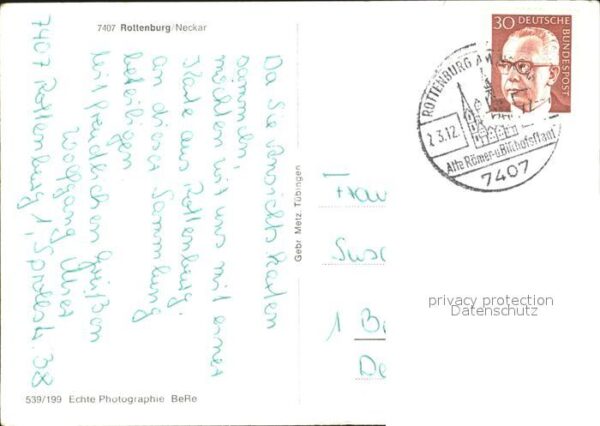 7407 Rottenburg/Neckar
Da Sie Ansichtskarten
sammeln,
möchten wir uns mit einer
Karte aus Rottenburg,
an dieser Sammlung
beteiligen.
Mit freundlichen Grüßen
Wolfgang
7407 Rottenburg 1, 38
539/199 Echte Photographie BeRe
Gebr. Metz, Tübingen
30 DEUTSCHE
BUNDESPOST
ROTTENBURG AM
2.3.72
Alte Römer-u. Bischofsstadt
7407
Frau
Sus
1 B
De
privacy protection
Datenschutz